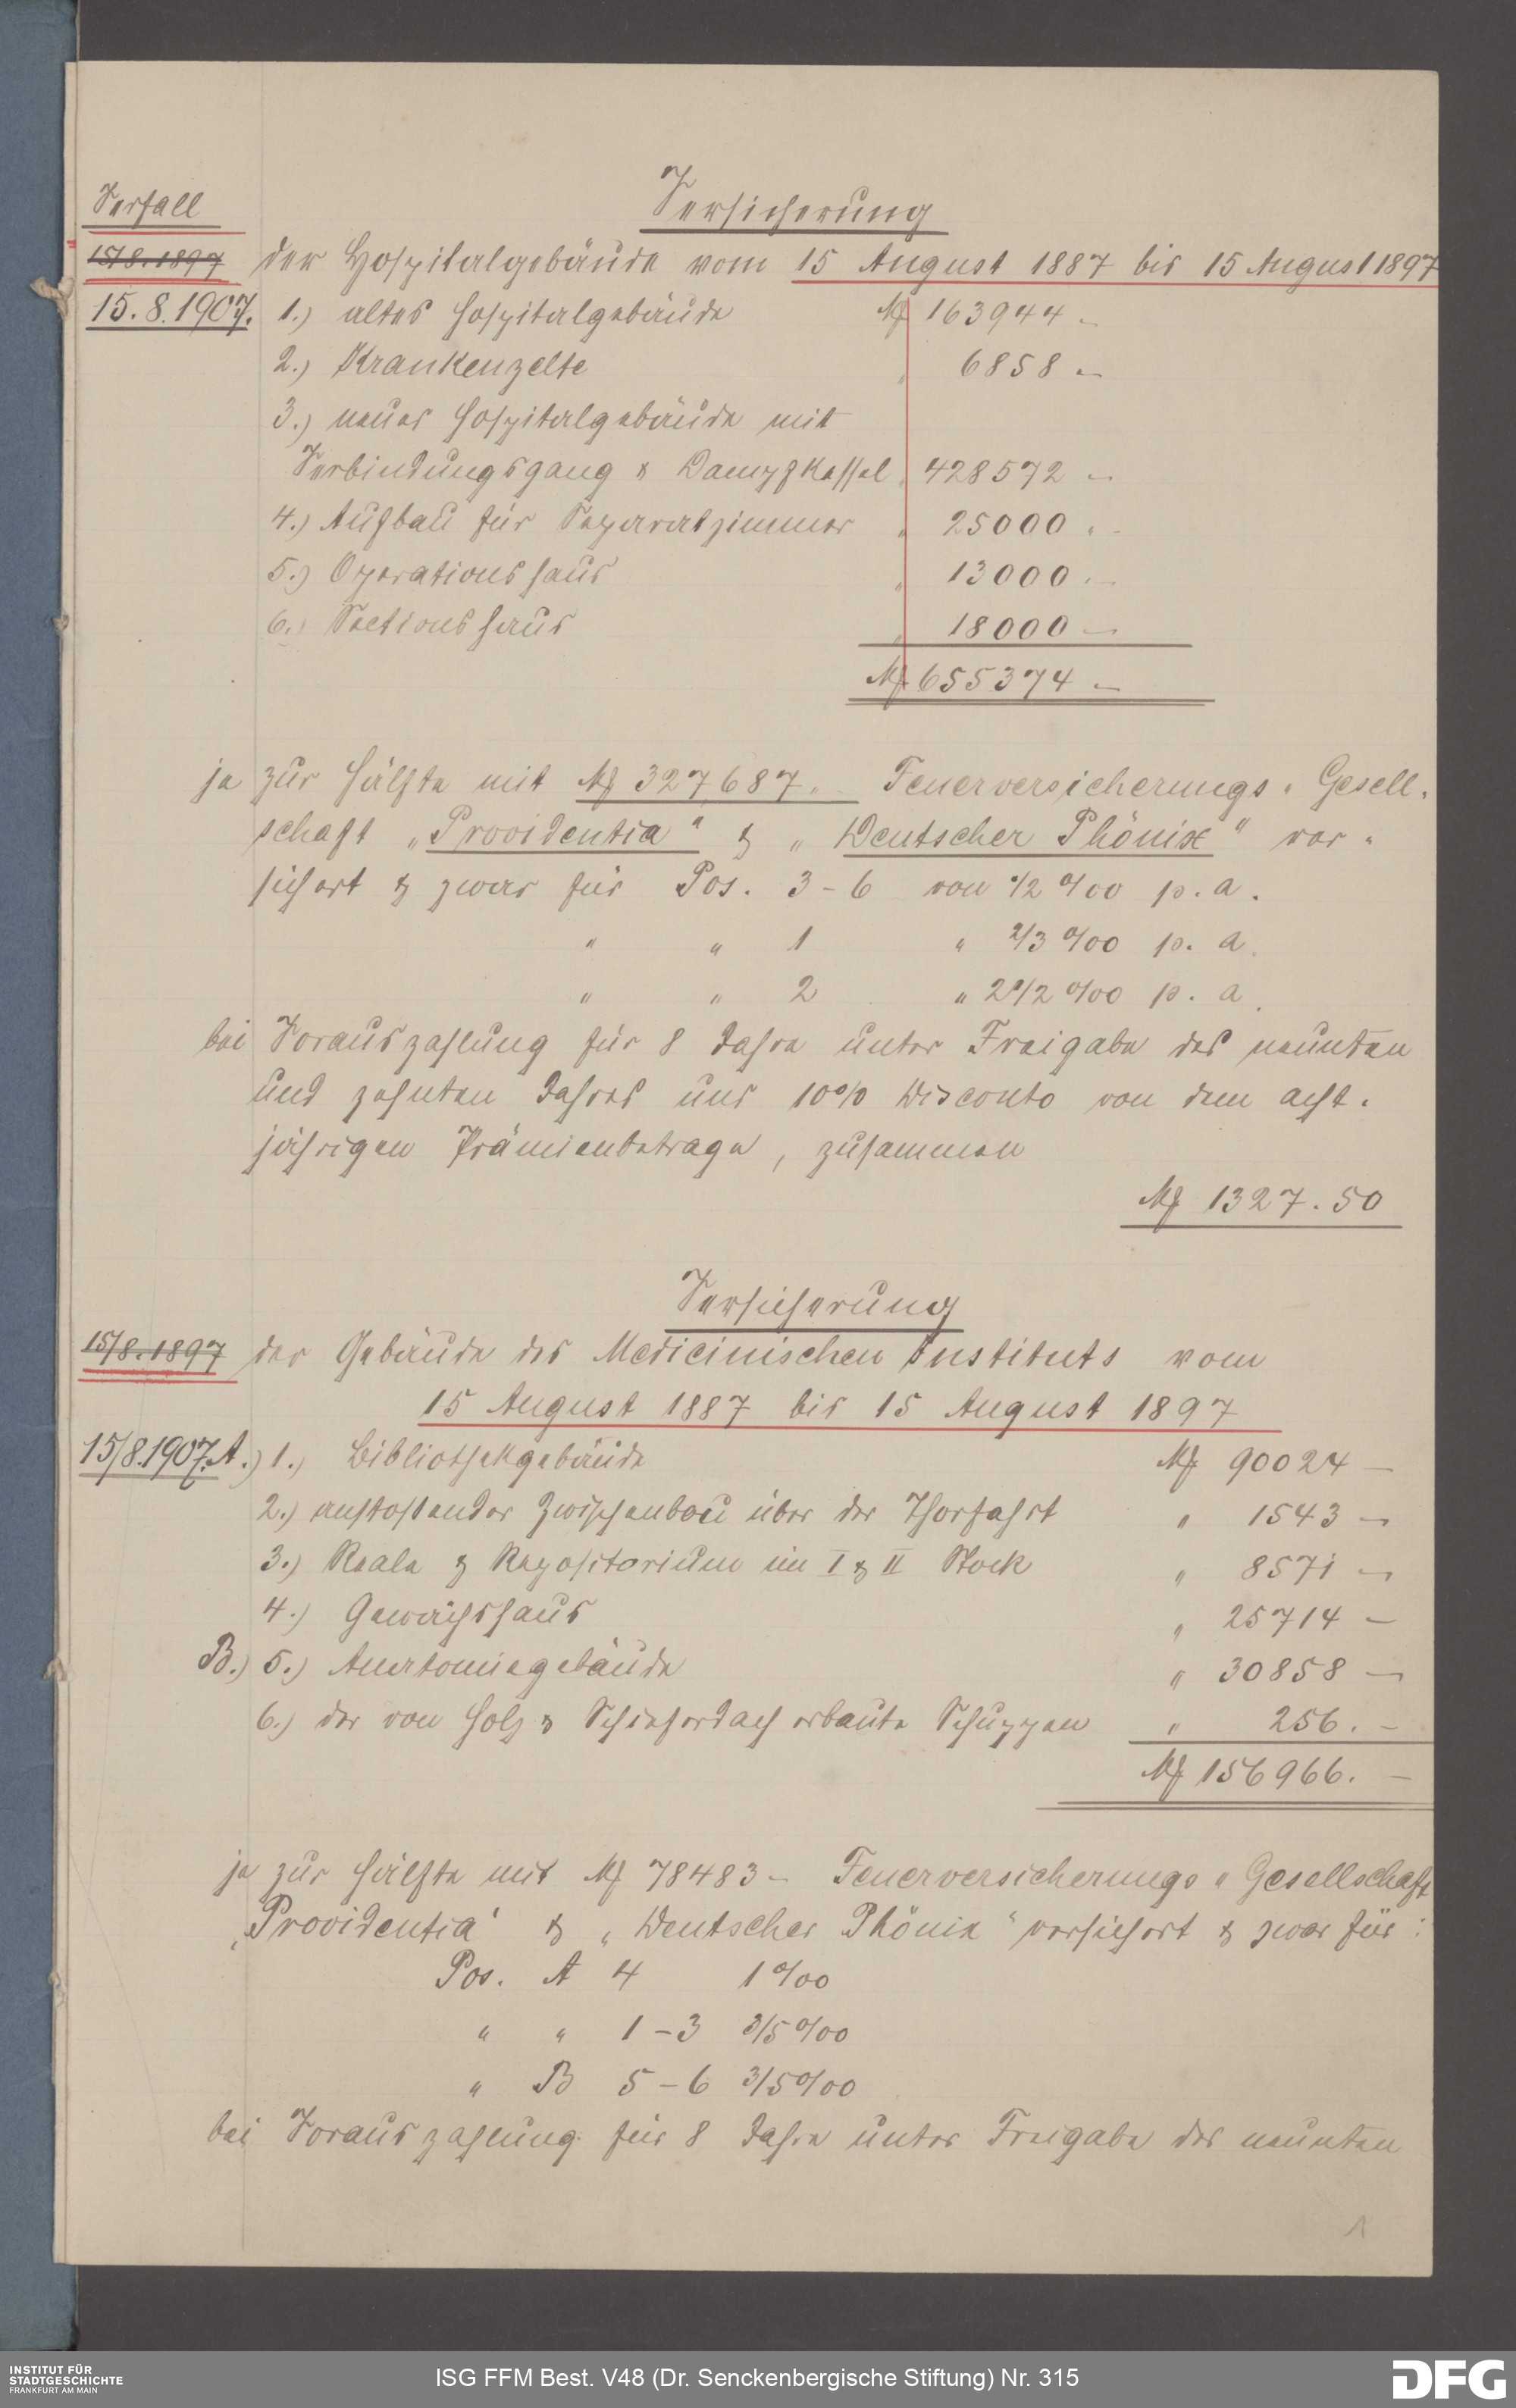 Verfall
Versicherung
15/8.1897 der Hospitalgebäude vom 15 August 1887 bis 15 August 1897
15.8.1907. 1.) altes Hospitalgebäude M 163944 –
2.) Krankenzelte " 6858 –
3.) neues Hospitalgebäude mit
Verbindungsgang & Dampfkessel " 428572 –
4.) Aufbau für Separatzimmer " 25000 . –
5.) Operationshaus " 13000 . –
6.) Sectionshaus " 18000 –
M 655374 –
je zur Hälfte mit M 327,687. – Feuerversicherungs-Gesell-
schaft „Providentia" & „Deutscher Phönix" ver-
sichert & zwar für Pos. 3–6 von 1/2 0/00 p. a.
" " 1 " 2/3 0/00 p. a.
" " 2 " 2 1/2 0/00 p. a.
bei Vorauszahlung für 8 Jahre unter Freigabe des neunten
und zehnten Jahres und 10% Disconto von dem acht-
jährigen Prämienbetrage, zusammen
M 1327.50
Versicherung
15/8.1897 der Gebäude des Medicinischen Instituts vom
15 August 1887 bis 15 August 1897
15/8.1907. A.) 1.) Bibliothekgebäude M 90024 –
2.) anstoßender Zwischenbau über der Thorfahrt " 1543 –
3.) Reale & Repositorium im I & II Stock " 8571 –
4.) Gewächshaus " 25714 –
B.) 5.) Anatomiegebäude " 30858 –
6.) der von Holz & Schieferdach erbaute Schuppen " 256. –
M 156966. –
je zur Hälfte mit M 78483 – Feuerversicherungs-Gesellschaft
„Providentia" & „Deutscher Phönix" versichert & zwar für:
Pos. A 4 1 0/00
" " 1–3 3/5 0/00
" B 5–6 3/5 0/00
bei Vorauszahlung für 8 Jahre unter Freigabe des neunten
1
INSTITUT FÜR
STADTGESCHICHTE
FRANKFURT AM MAIN
ISG FFM Best. V48 (Dr. Senckenbergische Stiftung) Nr. 315
DFG